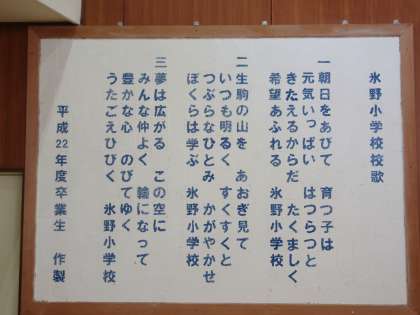 氷野小学校校歌
一 朝日をあびて 育つ子は
元気いっぱい はつらつと
きたえるからだ たくましく
希望あふれる 氷野小学校
二 生駒の山を あおぎ見て
いつも明るく すくすくと
つぶらなひとみ かがやかせ
ぼくらは学ぶ 氷野小学校
三 夢は広がる この空に
みんな仲よく 輪になって
豊かな心 のびてゆく
うたごえひびく 氷野小学校
平成22年度卒業生 作製